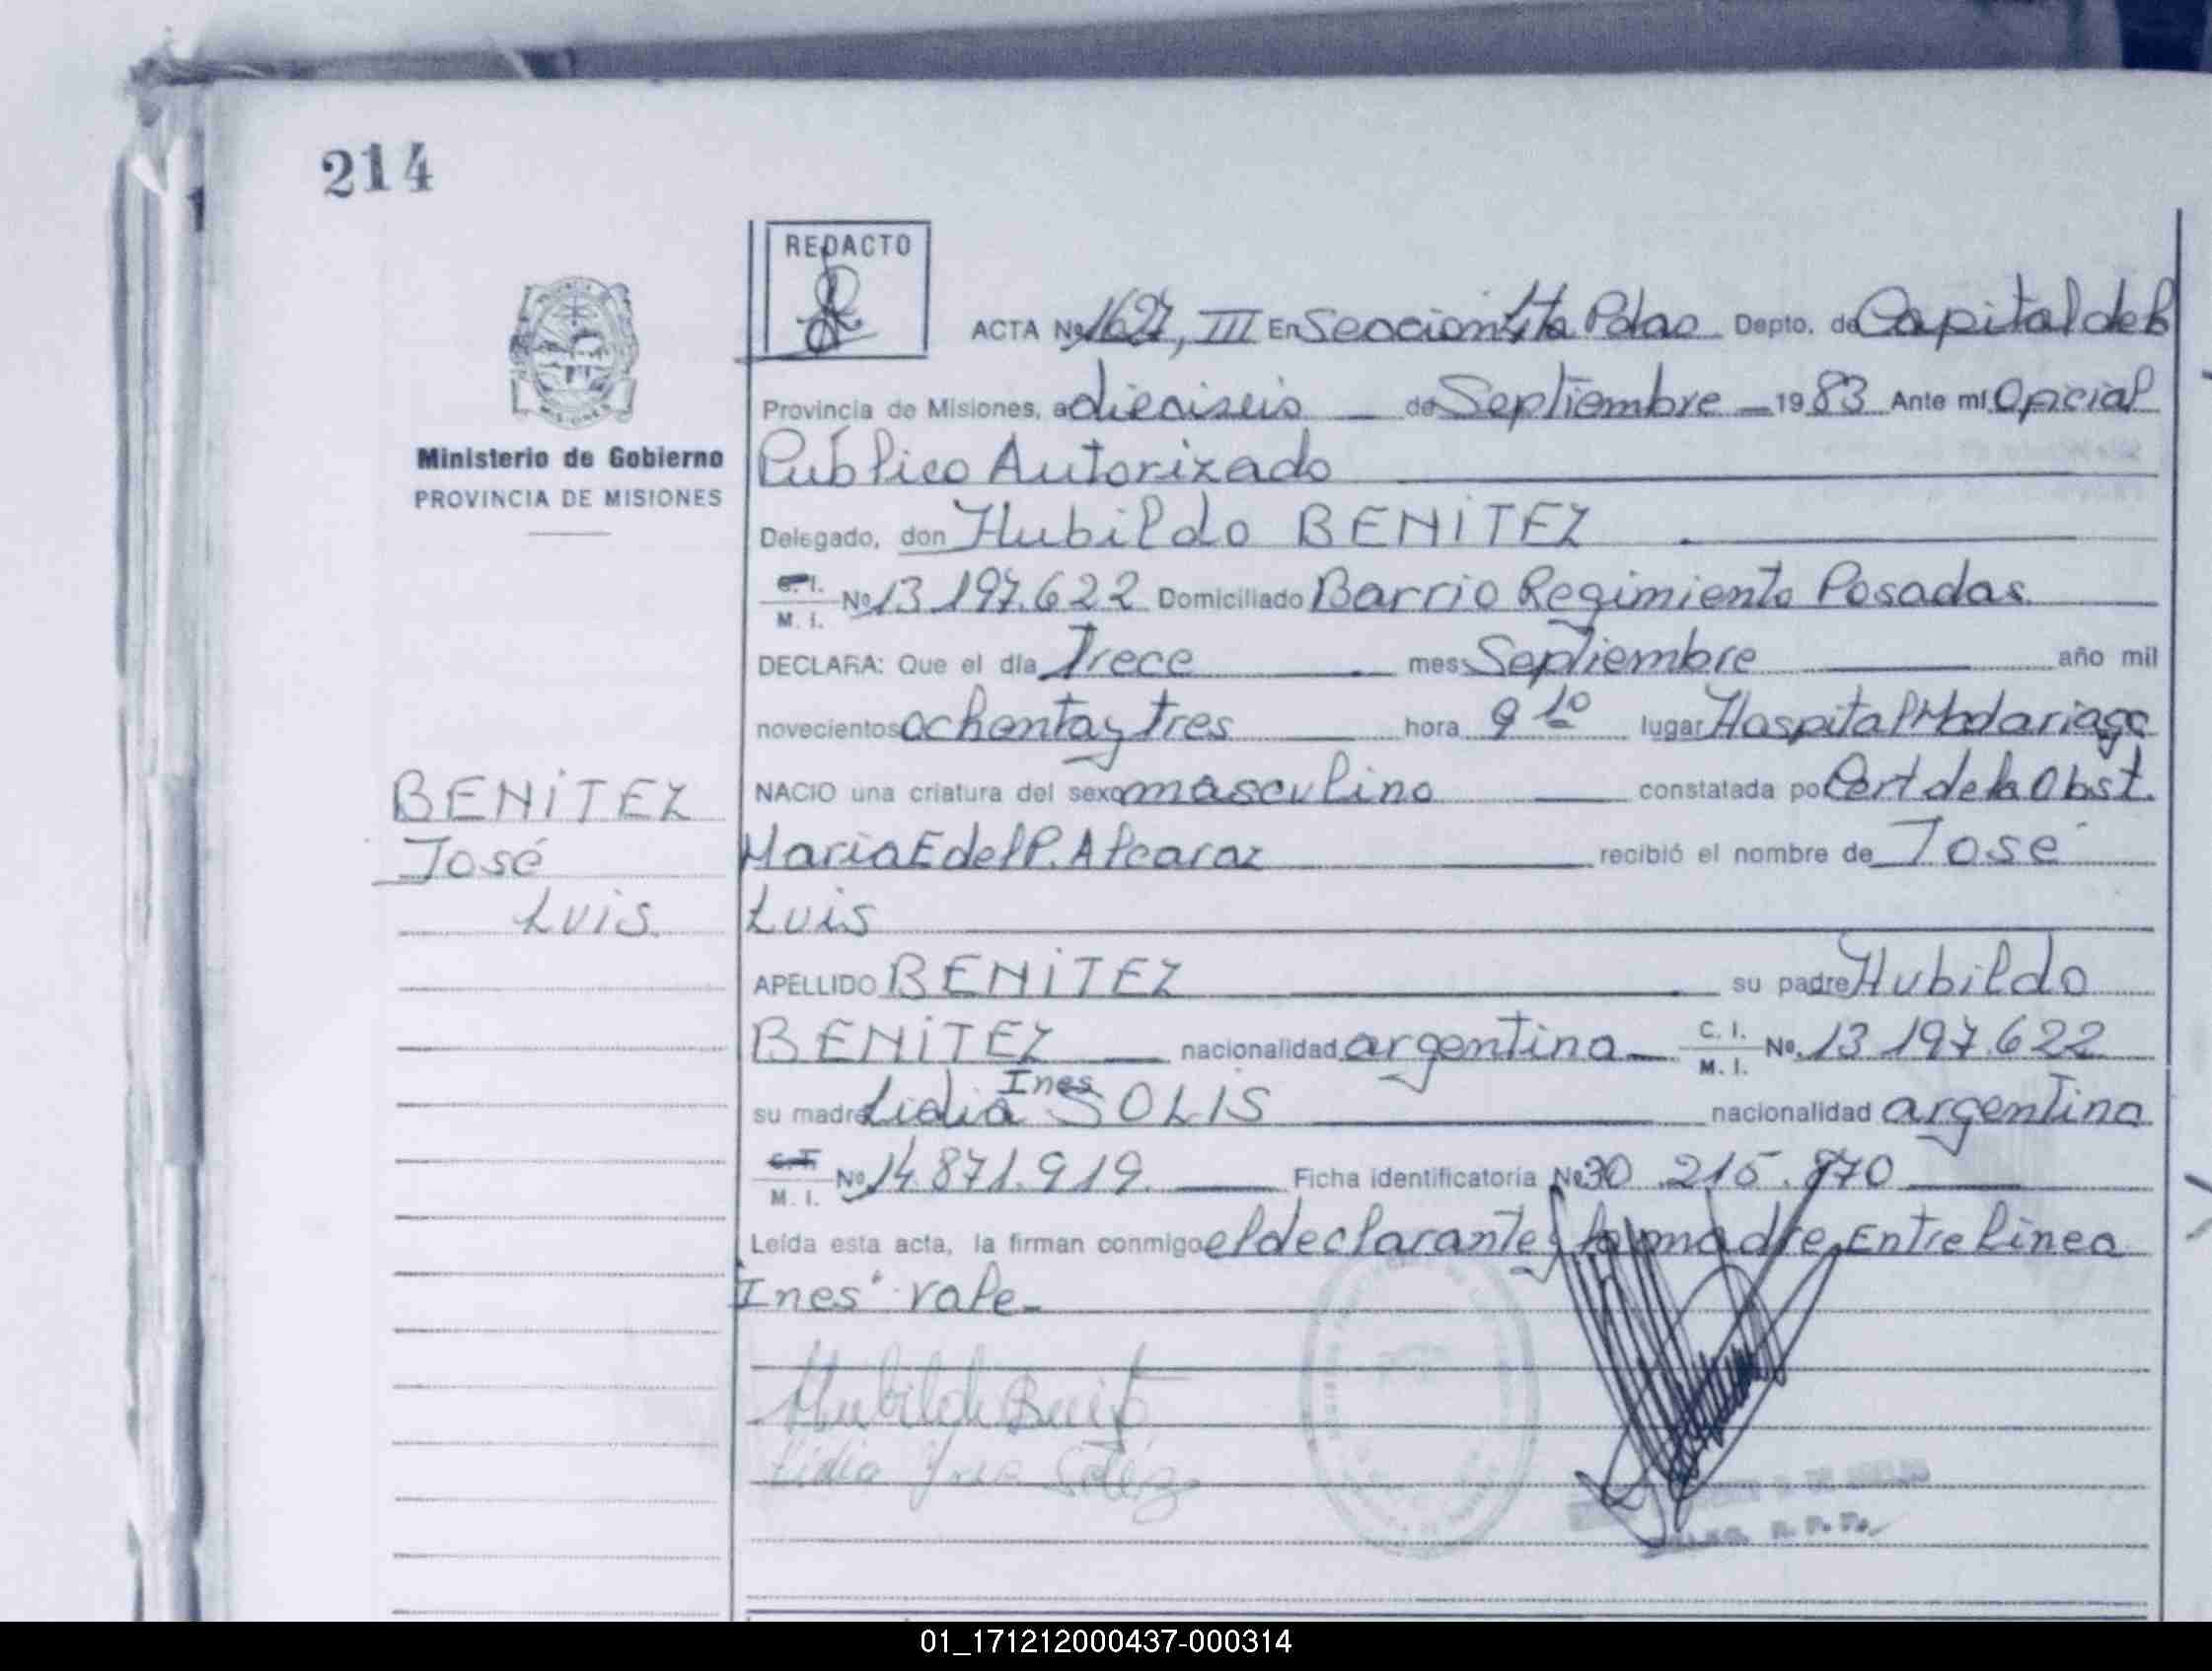 214
REDACTO
ACTA Nº 1627, III En Seccion 4ta Pdas Depto. de Capital de la
Provincia de Misiones, a dieciseis de Septiembre 1983 Ante mí Oficial
Público Autorizado
Ministerio de Gobierno
PROVINCIA DE MISIONES
Delegado, don Hubildo BENITEZ
C.I. M. I. Nº 13 197.622 Domiciliado Barrio Regimiento Posadas.
DECLARA: Que el día Trece mes Septiembre año mil
novecientos ochenta y tres hora 9 10 lugar Hospital Madariaga
NACIO una criatura del sexo masculino constatada por Cert de la Obst.
Maria E del P. Alcaraz recibió el nombre de José
Luis
BENITEZ
José
Luis.
APELLIDO BENITEZ su padre Hubildo
BENITEZ nacionalidad argentina C. I. M. I. Nº. 13 197.622
su madre Lidia Ines SOLIS nacionalidad argentina
C.I. M. I. Nº 14.871.919. Ficha identificatoria Nº 30.215.870
Leída esta acta, la firman conmigo el declarante y la madre, Entre linea
Ines" vale
Lidia
01_171212000437-000314